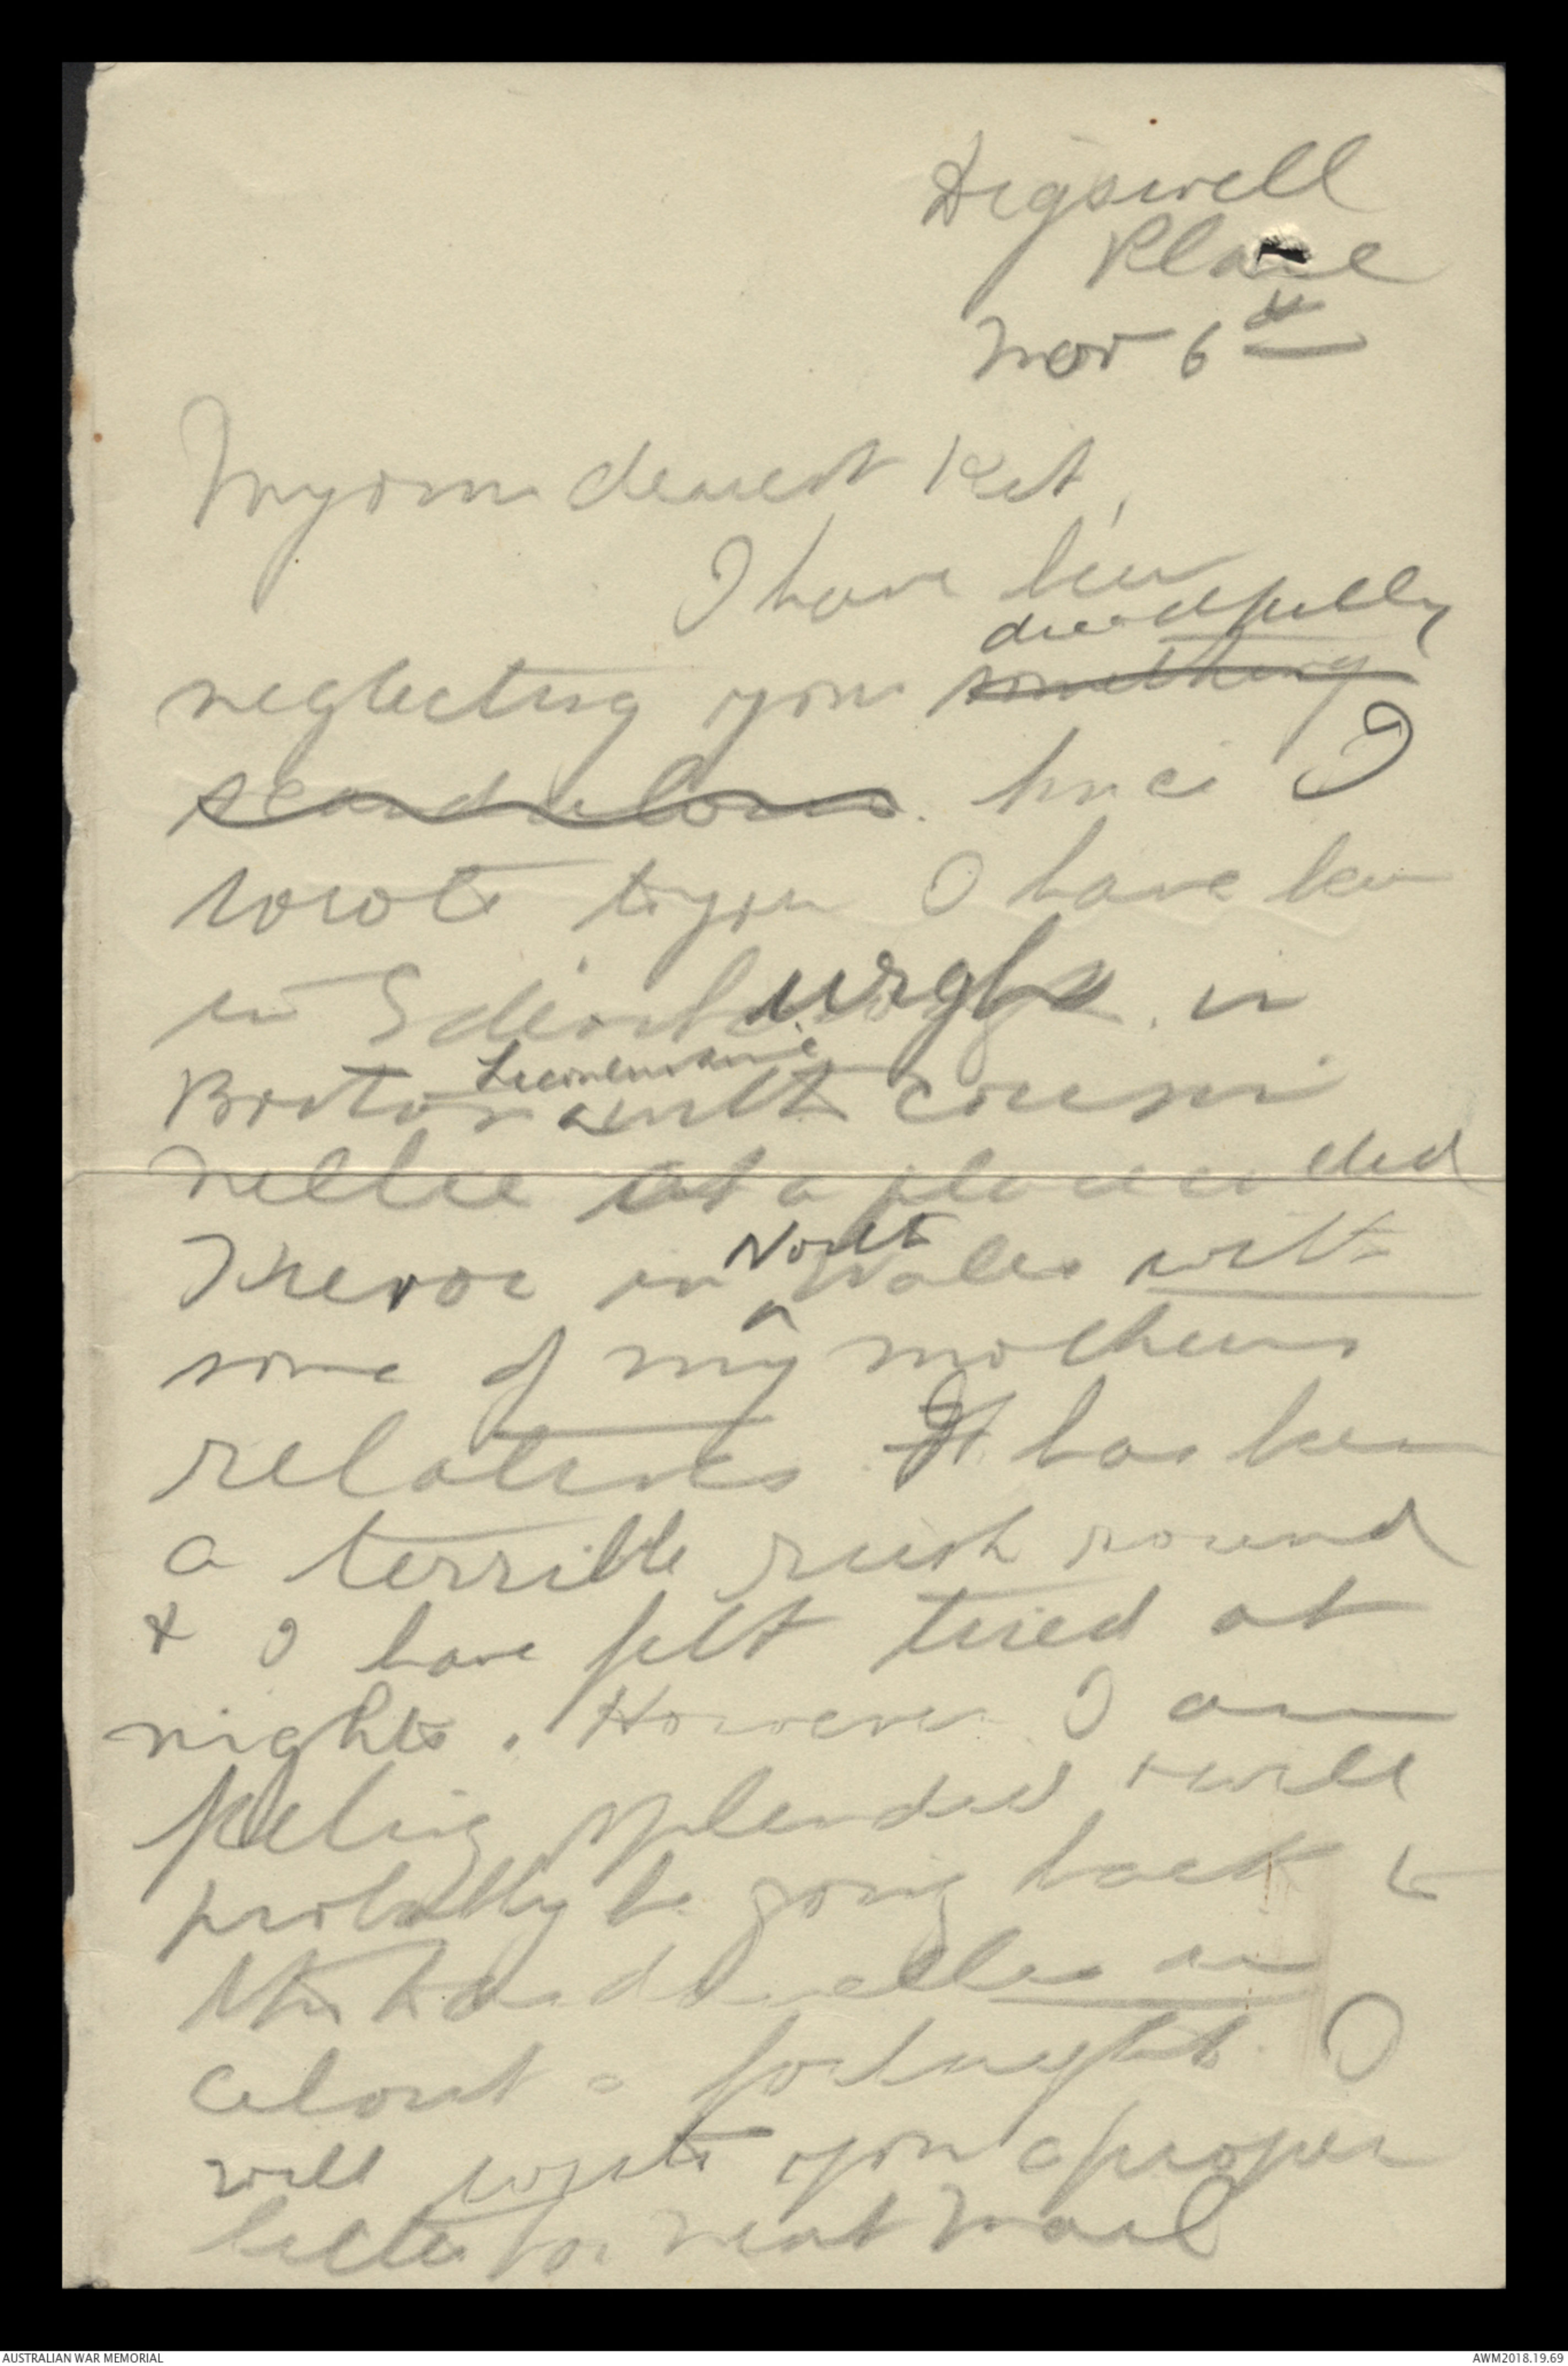 Digswell
Place
Nov 6th
My own dearest Kit,
I have been
dreadfully
neglecting you something
scandalous. Since I
wrote to you I have been
in Edinburgh, in
Lincolnshire
Boston with cousin
Nellie at a place called
North
Trevor in ^ Wales with
some of my mothers
relatives. It has been
a terrible rush round
& I have felt tired at
nights. However I am
feeling splendid & will
probably be going back to
the Dardanelles in
about a fortnight. I
will write you a proper
letter for next mail